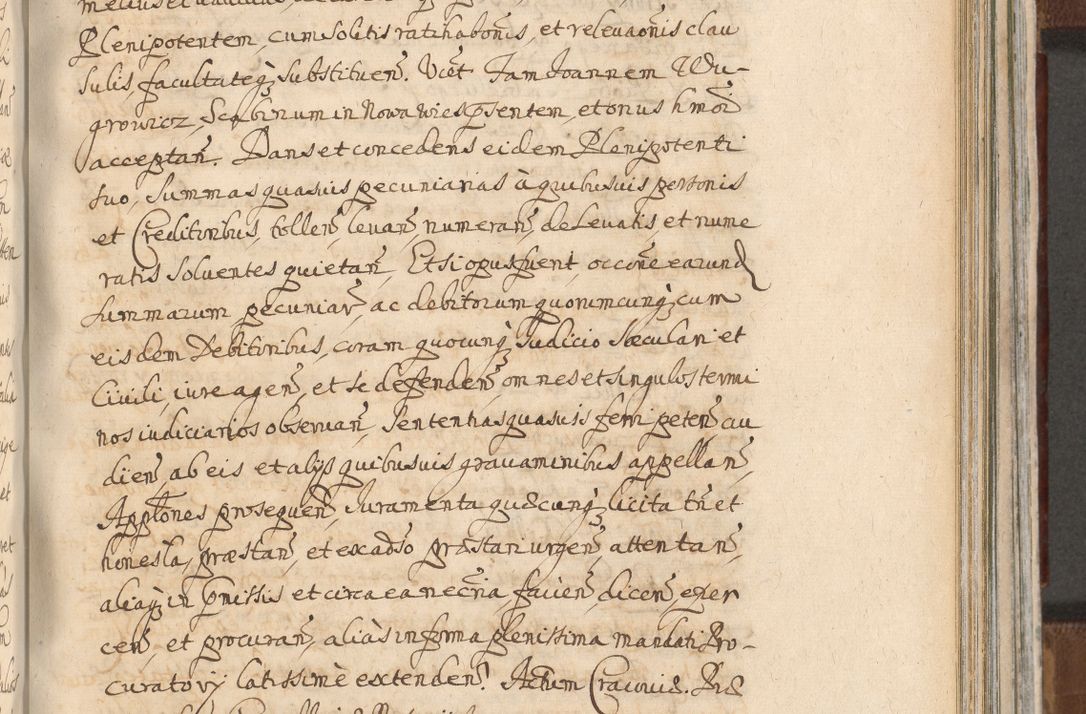 Plenipotentem, cum solitis ratihabonis, et relevaonis clau
sulis, facultateq substituen. Vice͠t Jam Joannem Wdu-
growicz, Scabinum in Nowawies p͠sentem, et onus hmoi
acceptan͠. Dans et concedens eidem Plenipotenti
suo, summas quasuis pecuniarias à quibusuis personis
et Creditoribus, tollen͠, leuan͠, numeran͠, de Leuatis, et nume
ratis soluentes quietan͠, Et si opus fuerit, occ͠one earund
summarum pecuniar͠, ac debitorum quorumcunq, cum
eisdem Debitoribus, coram quocunq Judicio Sæculari et
Ciuili, iure agen͠, et se defenden͠, omnes et singulos termi
nos iudiciarios obseruan͠, Sententias quasuis ferri peten͠, au
dien͠, ab eis et alijs quibusuis grauaminibus appellan͠,
Appl͠ones prosequen͠, Juramenta quæcunq, licita tn͠ et
honesta, præstan͠, et ex adso præstari urgen͠, attentan͠,
aliaq in p͠missis et circa ea nec͠ria, facien͠, dicen͠, exer
cen͠, et procuran͠, aliàs in forma plenissima mandati Pro-
curatorij latissimè extenden͠. Actum Cracouiæ. Præ